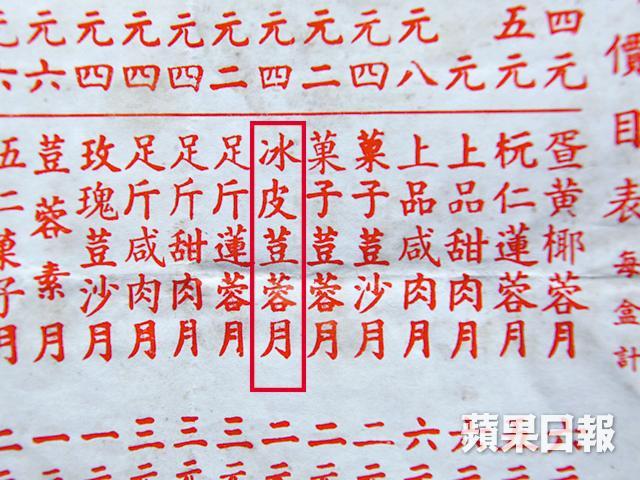 價目表每盒計
四元
五元
元
元八
元四
元二
元四
元二
元四
元四
元四
元六
元六
疍黃椰蓉月
杬仁蓮蓉月
上品甜肉月
上品咸肉月
菓子荳沙月
菓子荳蓉月
冰皮荳蓉月
足斤蓮蓉月
足斤甜肉月
足斤咸肉月
玫瑰荳沙月
荳蓉素月
五仁菓子月
六
二元
二元
二元
三元
三元
三元
一元
一元
二
蘋果日報